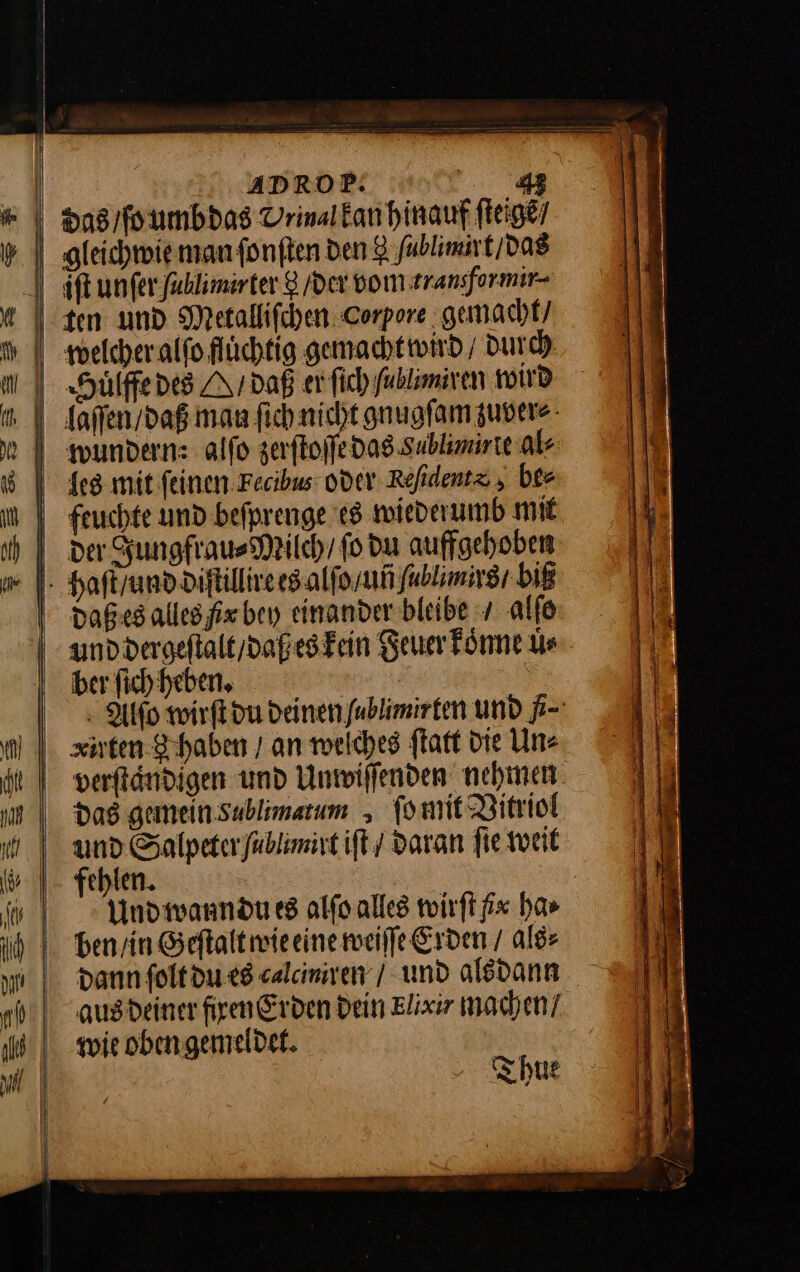 ADROP. 43
das/ſo umb das Vrinal kan hinauf ſteigẽ/
gleichwie man ſonſten den ☿ ſublimirt/das
iſt unſer ſublimirter ☿ /der vom transformir-
ten und Metalliſchen Corpore gemacht/
welcher alſo fluͤchtig gemacht wird / durch
Huͤlffe des 🜂/ daß er ſich ſublimiren wird
laſſen/daß man ſich nicht gnugſam zuver⸗
wundern: alſo zerſtoſſe das Sublimirte al⸗
les mit ſeinen Fecibus oder Reſidentz, be⸗
feuchte und beſprenge es wiederumb mit
der Jungfrau⸗Milch/ ſo du auffgehoben
haſt/und diſtillire es alſo/uñ ſublimirs/ biß
daß es alles fix bey einander bleibe / alſo
und dergeſtalt/daß es kein Feuer koͤnne uͤ⸗
ber ſich heben.
Alſo wirſt du deinen ſublimirten und fi-
xirten ☿ haben / an welches ſtatt die Un⸗
verſtaͤndigen und Unwiſſenden nehmen
das gemein Sublimatum , ſo mit Vitriol
und Salpeter ſublimirt iſt / daran ſie weit
fehlen.
Und wann du es alſo alles wirſt fix ha⸗
ben/in Geſtalt wie eine weiſſe Erden / als⸗
dann ſolt du es calciniren / und alsdann
aus deiner fixen Erden dein Elixir machen/
wie oben gemeldet.
Thue